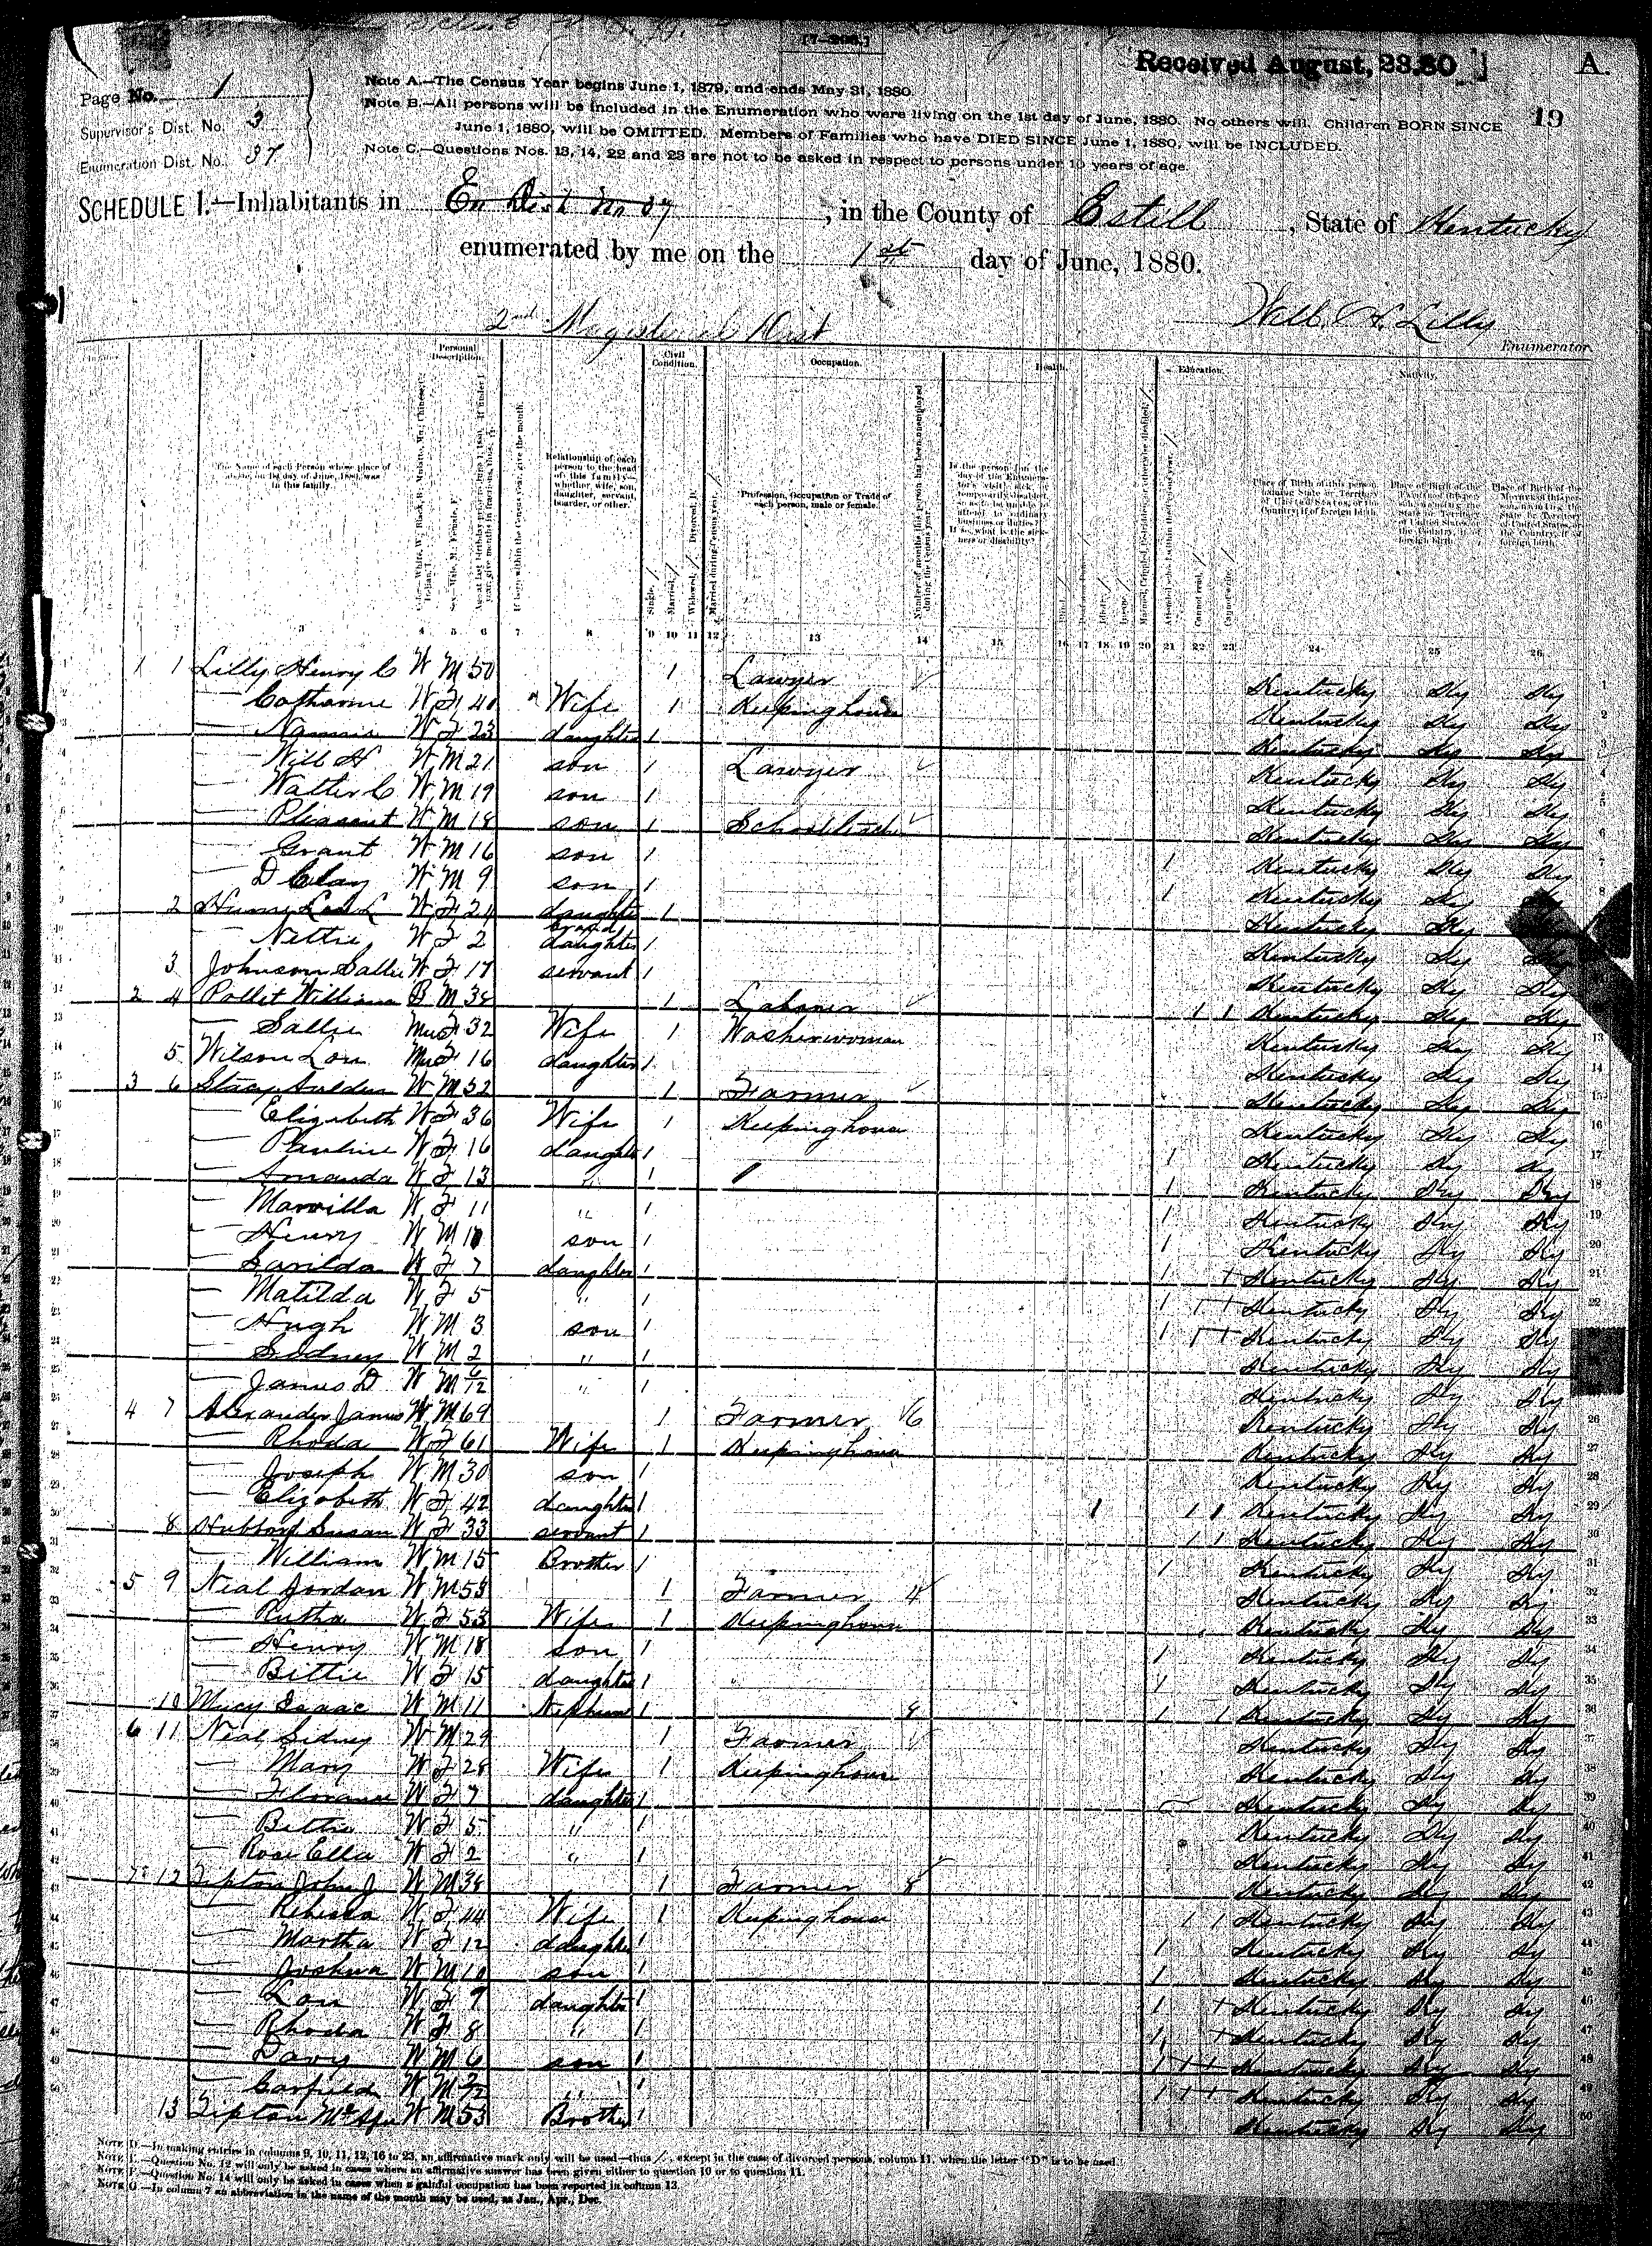 [7-296.]
Received August, 23.80 A.
Page No. 1
Supervisor's Dist. No. 3
Enumeration Dist. No. 37
19
Note A.—The Census Year begins June 1, 1879, and ends May 31, 1880.
Note B.—All persons will be included in the Enumeration who were living on the 1st day of June, 1880. No others will. Children BORN SINCE
June 1, 1880, will be OMITTED. Members of Families who have DIED SINCE June 1, 1880, will be INCLUDED.
Note C.—Questions Nos. 13, 14, 22 and 23 are not to be asked in respect to persons under 10 years of age.
SCHEDULE 1.—Inhabitants in En Dist No 37, in the County of Estill, State of Kentucky
enumerated by me on the 1st day of June, 1880.
2nd Magisterial Dist
Will. H. Lilly
Enumerator.
Personal Description. Civil Condition. Occupation. Health. Education. Nativity.
The Name of each Person whose place of abode, on 1st day of June, 1880, was in this family.
If born within the Census year, give the month.
Relationship of each person to the head of this family—whether wife, son, daughter, servant, boarder, or other.
Single, / Married, / Widowed, / Divorced, D.
Married during Census year, /
Profession, Occupation or Trade of each person, male or female.
Number of months this person has been unemployed during the Census year.
Attended school within the Census year, /
Cannot read, /
Cannot write, /
3 4 5 6 7 8 9 10 11 12 13 14 15 16 17 18 19 20 21 22 23 24 25 26
1 1 Lilly Henry C W M 50 1 Lawyer Kentucky Ky Ky
— Catharine W F 40 Wife 1 Keeping house Kentucky Ky Ky
— Nannie W F 23 daughter 1 Kentucky Ky Ky
— Will H W M 21 son 1 Lawyer Kentucky Ky Ky
— Walter C W M 19 son 1 Kentucky Ky Ky
— Pleasant W M 18 son 1 School teach Kentucky Ky Ky
— Grant W M 16 son 1 1 Kentucky Ky Ky
— D Clay W M 9 son 1 1 Kentucky Ky Ky
2 W F 21 daughter 1 Kentucky Ky Ky
— Nettie W F 2 grand daughter 1 Kentucky Ky Ky
3 Johnson Sallie W F 17 servant 1 Kentucky Ky Ky
2 4 William B M 38 1 Laborer 1 1 Kentucky Ky Ky
— Sallie Mu F 32 Wife 1 Washerwoman Kentucky Ky Ky
5 Wilson Lou Mu F 16 daughter 1 Kentucky Ky Ky
3 6 Stacy W M 52 1 Farmer Kentucky Ky Ky
— Elizabeth W F 36 Wife 1 Keeping house Kentucky Ky Ky
— Pauline W F 16 daughter 1 1 Kentucky Ky Ky
— Amanda W F 13 " 1 1 Kentucky Ky Ky
— W F 11 " 1 1 Kentucky Ky Ky
— Henry W M 10 son 1 1 Kentucky Ky Ky
— W F 7 daughter 1 1 + Kentucky Ky Ky
— Matilda W F 5 " 1 1 + + Kentucky Ky Ky
— Hugh W M 3 son 1 1 + + Kentucky Ky Ky
— Sidney W M 2 " 1 Kentucky Ky Ky
— James D W M 6/12 " 1 Kentucky Ky Ky
4 7 Alexander James W M 69 1 Farmer 6 Kentucky Ky Ky
— Rhoda W F 61 Wife 1 Keeping house Kentucky Ky Ky
— Joseph W M 30 son 1 Kentucky Ky Ky
— Elizabeth W F 42 daughter 1 1 1 1 Kentucky Ky Ky
8 Susan W F 33 servant 1 1 1 Kentucky Ky Ky
— William W M 15 Brother 1 1 Kentucky Ky Ky
5 9 Neal Jordan W M 53 1 Farmer 4 Kentucky Ky Ky
— Rutha W F 53 Wife 1 Keeping house Kentucky Ky Ky
— Henry W M 18 son 1 1 Kentucky Ky Ky
— Bittie W F 15 daughter 1 1 Kentucky Ky Ky
10 Isaac W M 11 Nephew 1 1 1 Kentucky Ky Ky
6 11 Neal Sidney W M 29 1 Farmer Kentucky Ky Ky
— Mary W F 28 Wife 1 Keeping house Kentucky Ky Ky
— Florance W F 7 daughter Kentucky Ky Ky
— Bettie W F 5 " 1 Kentucky Ky Ky
— Rose Ella W F 2 " 1 Kentucky Ky Ky
7 12 Tipton John J W M 38 1 Farmer 8 Kentucky Ky Ky
— Rebecca W F 44 Wife 1 Keeping house 1 1 Kentucky Ky Ky
— Martha W F 12 daughter 1 1 Kentucky Ky Ky
— Joshua W M 10 son 1 1 Kentucky Ky Ky
— Lou W F 9 daughter 1 1 + Kentucky Ky Ky
— Rhoda W F 8 " 1 1 + Kentucky Ky Ky
— Davy W M 6 son 1 1 + + Kentucky Ky Ky
— Garfield W M " 1 1 + + Kentucky Ky Ky
13 Tipton W M 53 Brother 1 Kentucky Ky Ky
NOTE D.—In making entries in columns 9, 10, 11, 12, 16 to 23, an affirmative mark only will be used—thus /, except in the case of divorced persons, column 11, when the letter "D" is to be used.
NOTE E.—Question No. 12 will only be asked in cases where an affirmative answer has been given either to question 10 or to question 11.
NOTE F.—Question No. 14 will only be asked in cases when a gainful occupation has been reported in column 13.
NOTE G.—In column 7 an abbreviation in the name of the month may be used, as Jan., Apr., Dec.